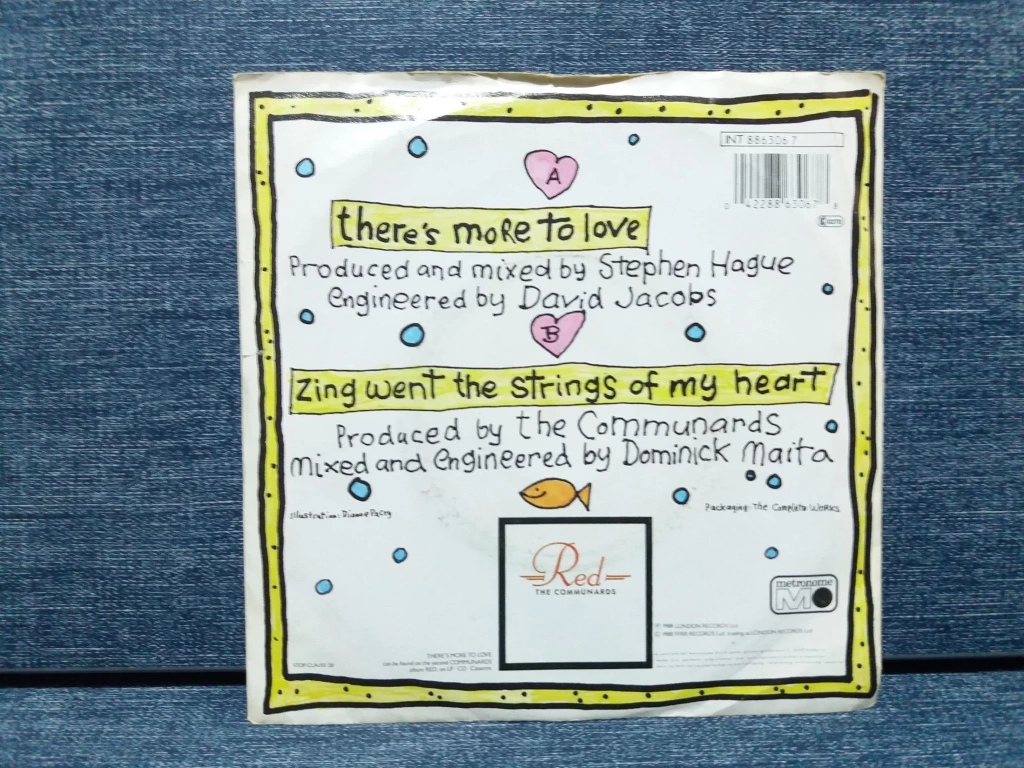 INT 886306 7
0 42288 63067 8
A
there's more to love
Produced and mixed by Stephen Hague
engineered by David Jacobs
B
Zing went the strings of my heart
Produced by the Communards
mixed and engineered by Dominick Maita
Illustration: Packaging: The Complete Works
Red
THE COMMUNARDS
metronome
M
℗ 1988 LONDON RECORDS Ltd
© 1988 FFRR RECORDS Ltd trading as LONDON RECORDS Ltd
THERE'S MORE TO LOVE
can be found on the second COMMUNARDS
album RED, on LP · CD · Cassette